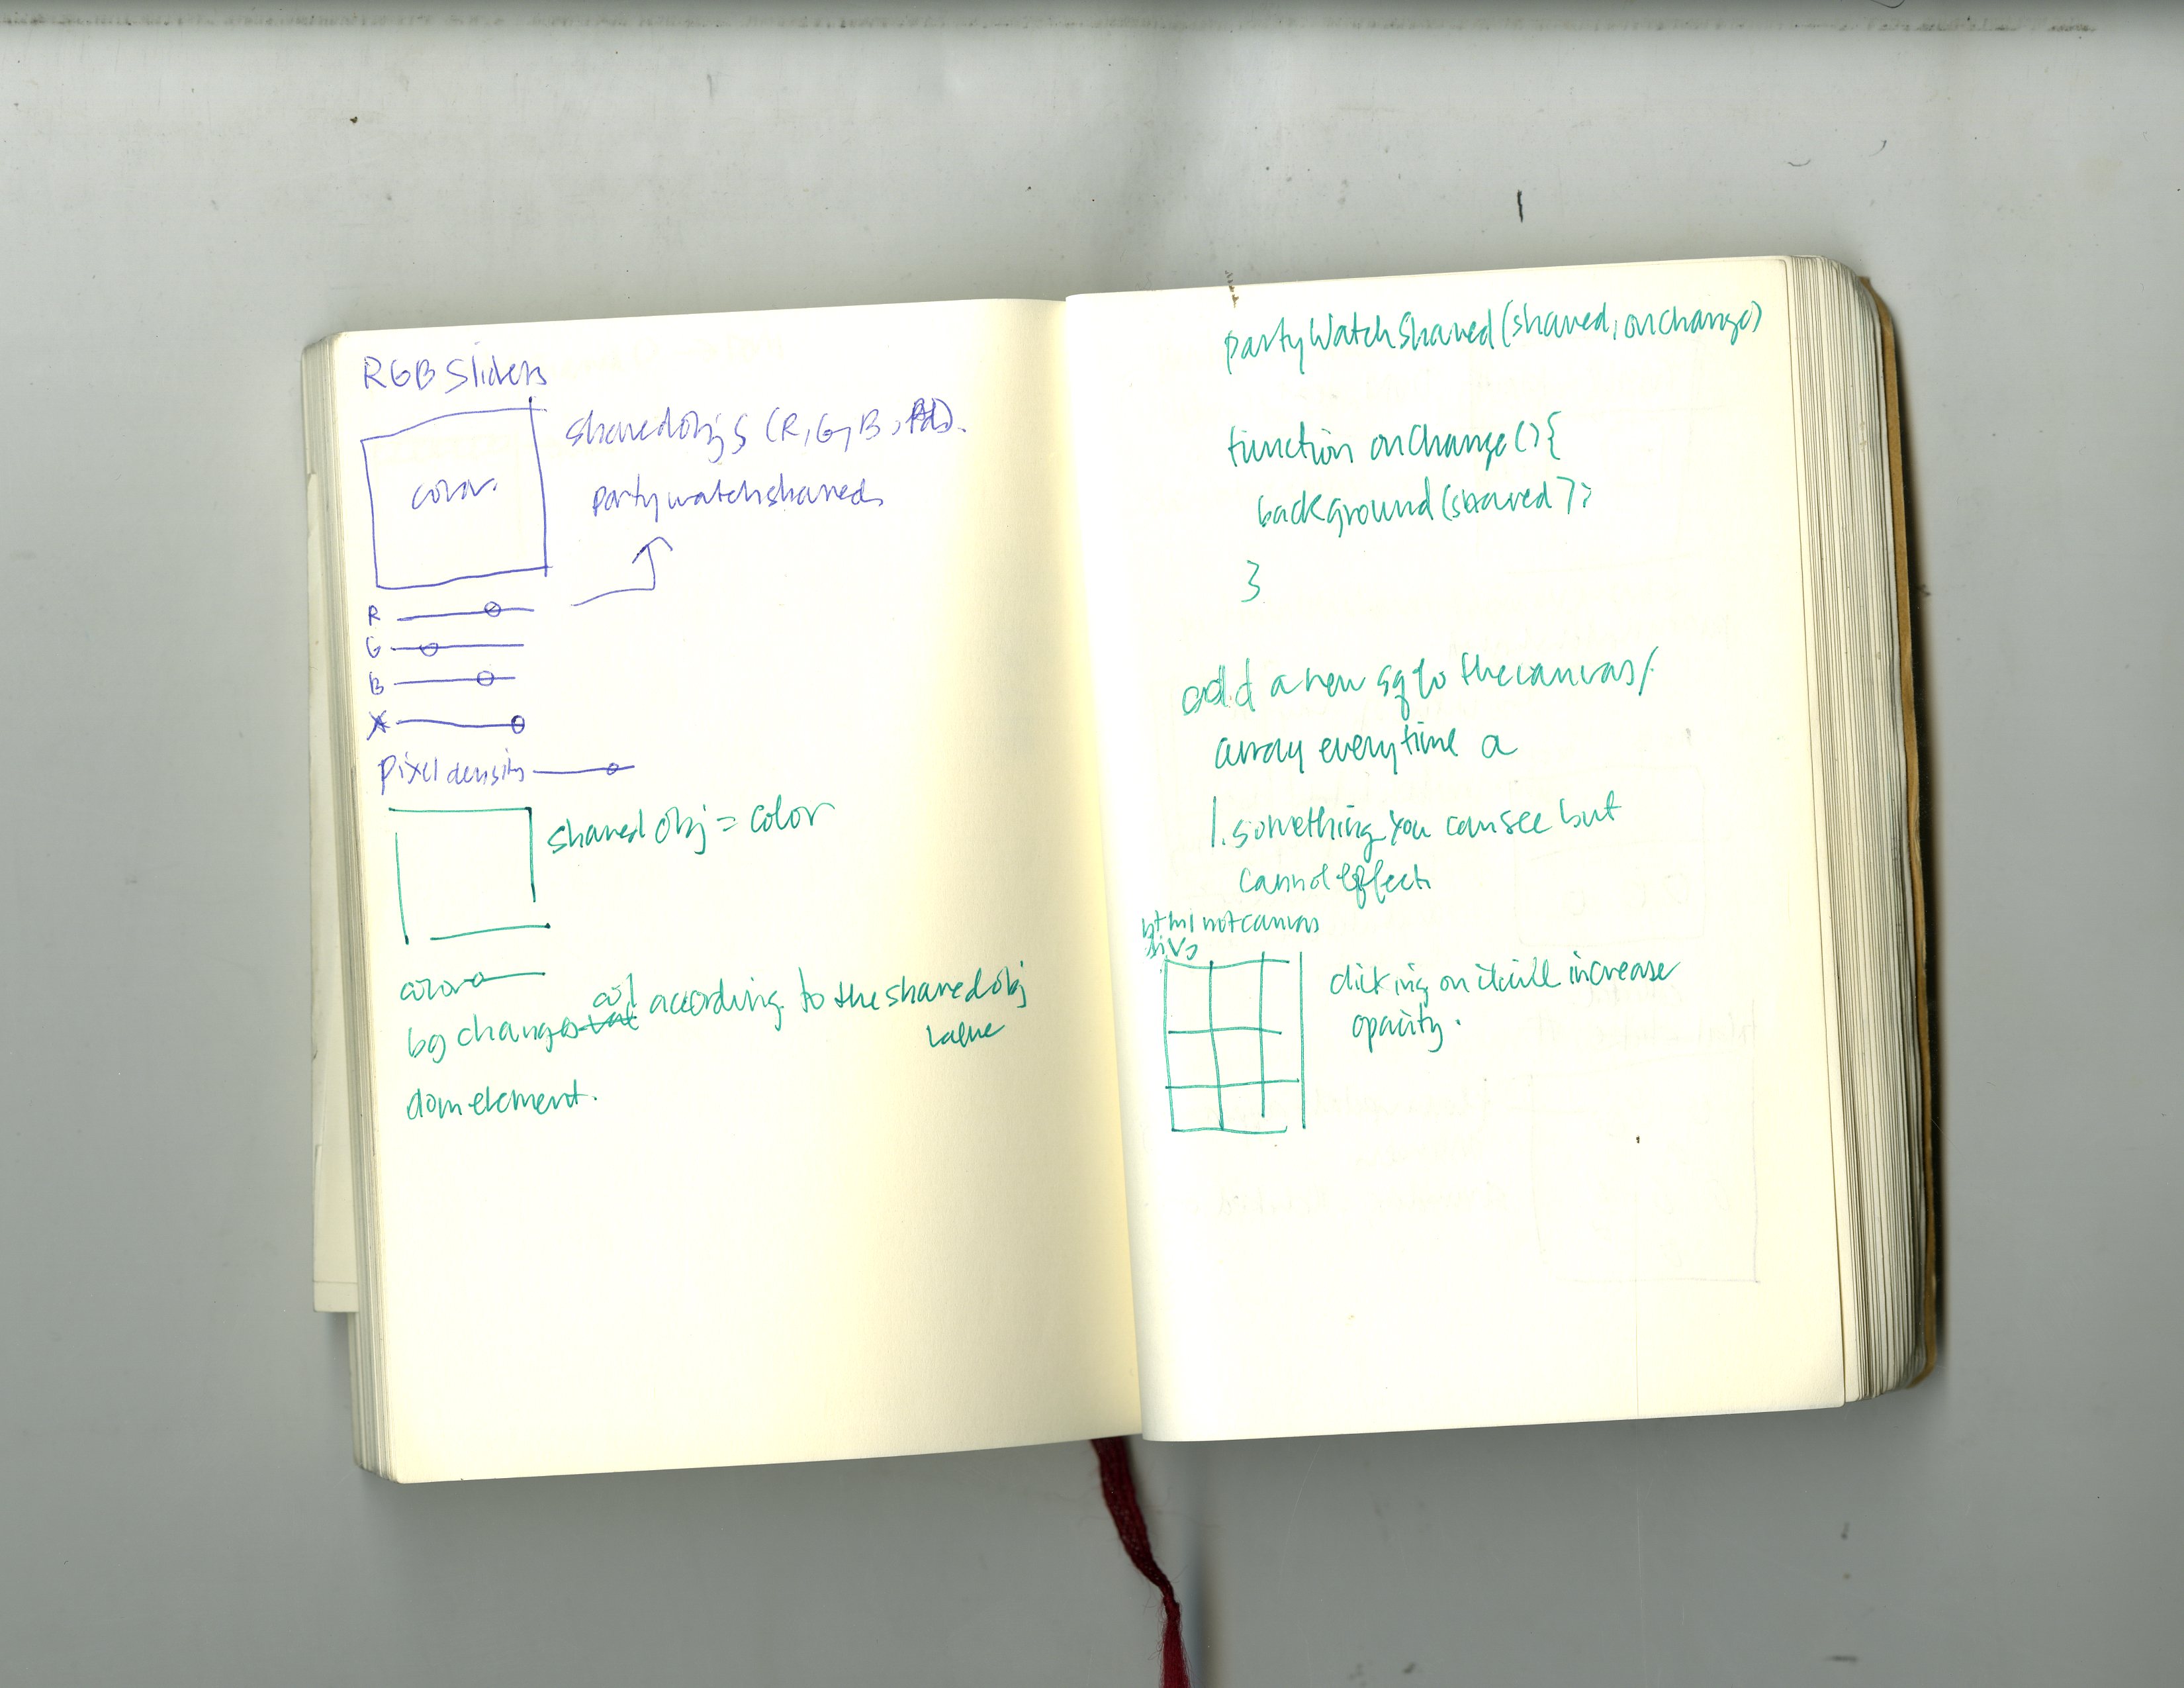 RGB Sliders
color.
shared objs (R, G, B, Pd).
partywatchshared
R
G
B
A
Pixel density
shared obj = color
color
bg changes val col according to the shared obj
value
dom element.
partyWatchShared(shared, onchange)
function onChange(){
background(shared);
}
add a new sq to the canvas/
array everytime a
1. something you can see but
cannot effect
html not canvas
divs
clicking on it will increase
opacity.